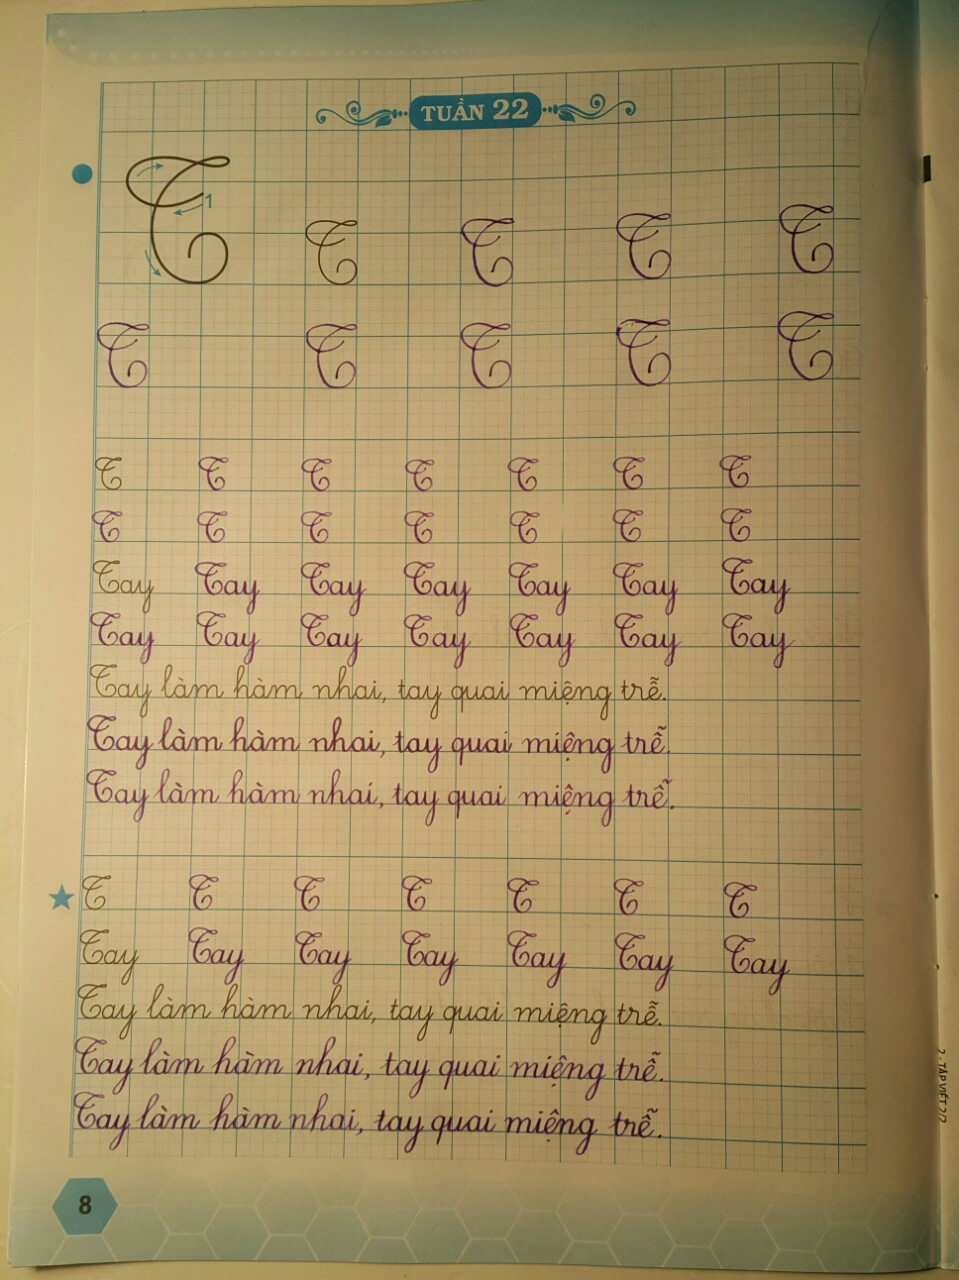 TUẦN 22
T 1 T T T T
T T T T T
T T T T T T T
T T T T T T T
Tay Tay Tay Tay Tay Tay Tay
Tay Tay Tay Tay Tay Tay Tay
Tay làm hàm nhai, tay quai miệng trễ.
Tay làm hàm nhai, tay quai miệng trễ.
Tay làm hàm nhai, tay quai miệng trễ.
T T T T T T T
Tay Tay Tay Tay Tay Tay Tay
Tay làm hàm nhai, tay quai miệng trễ.
Tay làm hàm nhai, tay quai miệng trễ.
Tay làm hàm nhai, tay quai miệng trễ.
8
2 - TẬP VIẾT 2/2